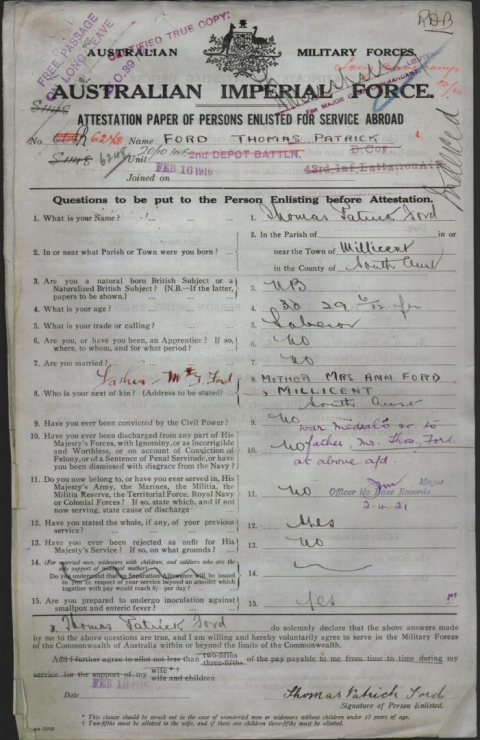 RDB
FREE PASSAGE
CERTIFIED TRUE COPY:
AUSTRALIAN MILITARY FORCES.
AUSTRALIAN IMPERIAL FORCE.
ATTESTATION PAPER OF PERSONS ENLISTED FOR SERVICE ABROAD
No. 6248 Name FORD THOMAS PATRICK
6248 Unit 2nd DEPOT BATTLN. D. Coy
Joined on FEB 16 1916
Millicent
Questions to be put to the Person Enlisting before Attestation.
1. What is your Name? 1. Thomas Patrick Ford
2. In or near what Parish or Town were you born? 2. In the Parish of in or
near the Town of Millicent
in the County of South Aust
3. Are you a natural born British Subject or a
Naturalized British Subject? (N.B.—If the latter,
papers to be shown.) 3. NB
4. What is your age? 4. 30 29 6/12 yrs
5. What is your trade or calling? 5. Laberor
6. Are you, or have you been, an Apprentice? If so,
where, to whom, and for what period? 6. NO
7. Are you married? 7. NO
Father - Mr T. Ford
8. Who is your next of kin? (Address to be stated) 8 MOTHER MRS ANN FORD
MILLICENT
South Aust
9. Have you ever been convicted by the Civil Power? 9. No
war medals go to
father, Mr. Thos. Ford.
at above a/d.
10. Have you ever been discharged from any part of His
Majesty's Forces, with Ignominy, or as Incorrigible
and Worthless, or on account of Conviction of
Felony, or of a Sentence of Penal Servitude, or have
you been dismissed with disgrace from the Navy? 10. NO
11. Do you now belong to, or have you ever served in, His
Majesty's Army, the Marines, the Militia, the
Militia Reserve, the Territorial Force, Royal Navy
or Colonial Forces? If so, state which, and if not
now serving, state cause of discharge 11. NO
Major
Officer i/c Base Records
2.4.21
12. Have you stated the whole, if any, of your previous
service? 12. Yes
13. Have you ever been rejected as unfit for His
Majesty's Service? If so, on what grounds? 13. NO
14. (For married men, widowers with children, and soldiers who are the
sole support of widowed mother)
Do you understand that no Separation Allowance will be issued
to you in respect of your service beyond an amount which
together with pay would reach 8/- per day? 14.
15. Are you prepared to undergo inoculation against
smallpox and enteric fever? 15. yes
I, Thomas Patrick Ford do solemnly declare that the above answers made
by me to the above questions are true, and I am willing and hereby voluntarily agree to serve in the Military Forces
of the Commonwealth of Australia within or beyond the limits of the Commonwealth.
And I further agree to allot not less than two-fifths three-fifths of the pay payable to me from time to time during my
service for the support of my wife*† wife and children
Date FEB 16 1916
Thomas Patrick Ford
Signature of Person Enlisted.
* This clause should be struck out in the case of unmarried men or widowers without children under 18 years of age.
† Two-fifths must be allotted to the wife, and if there are children three-fifths must be allotted.